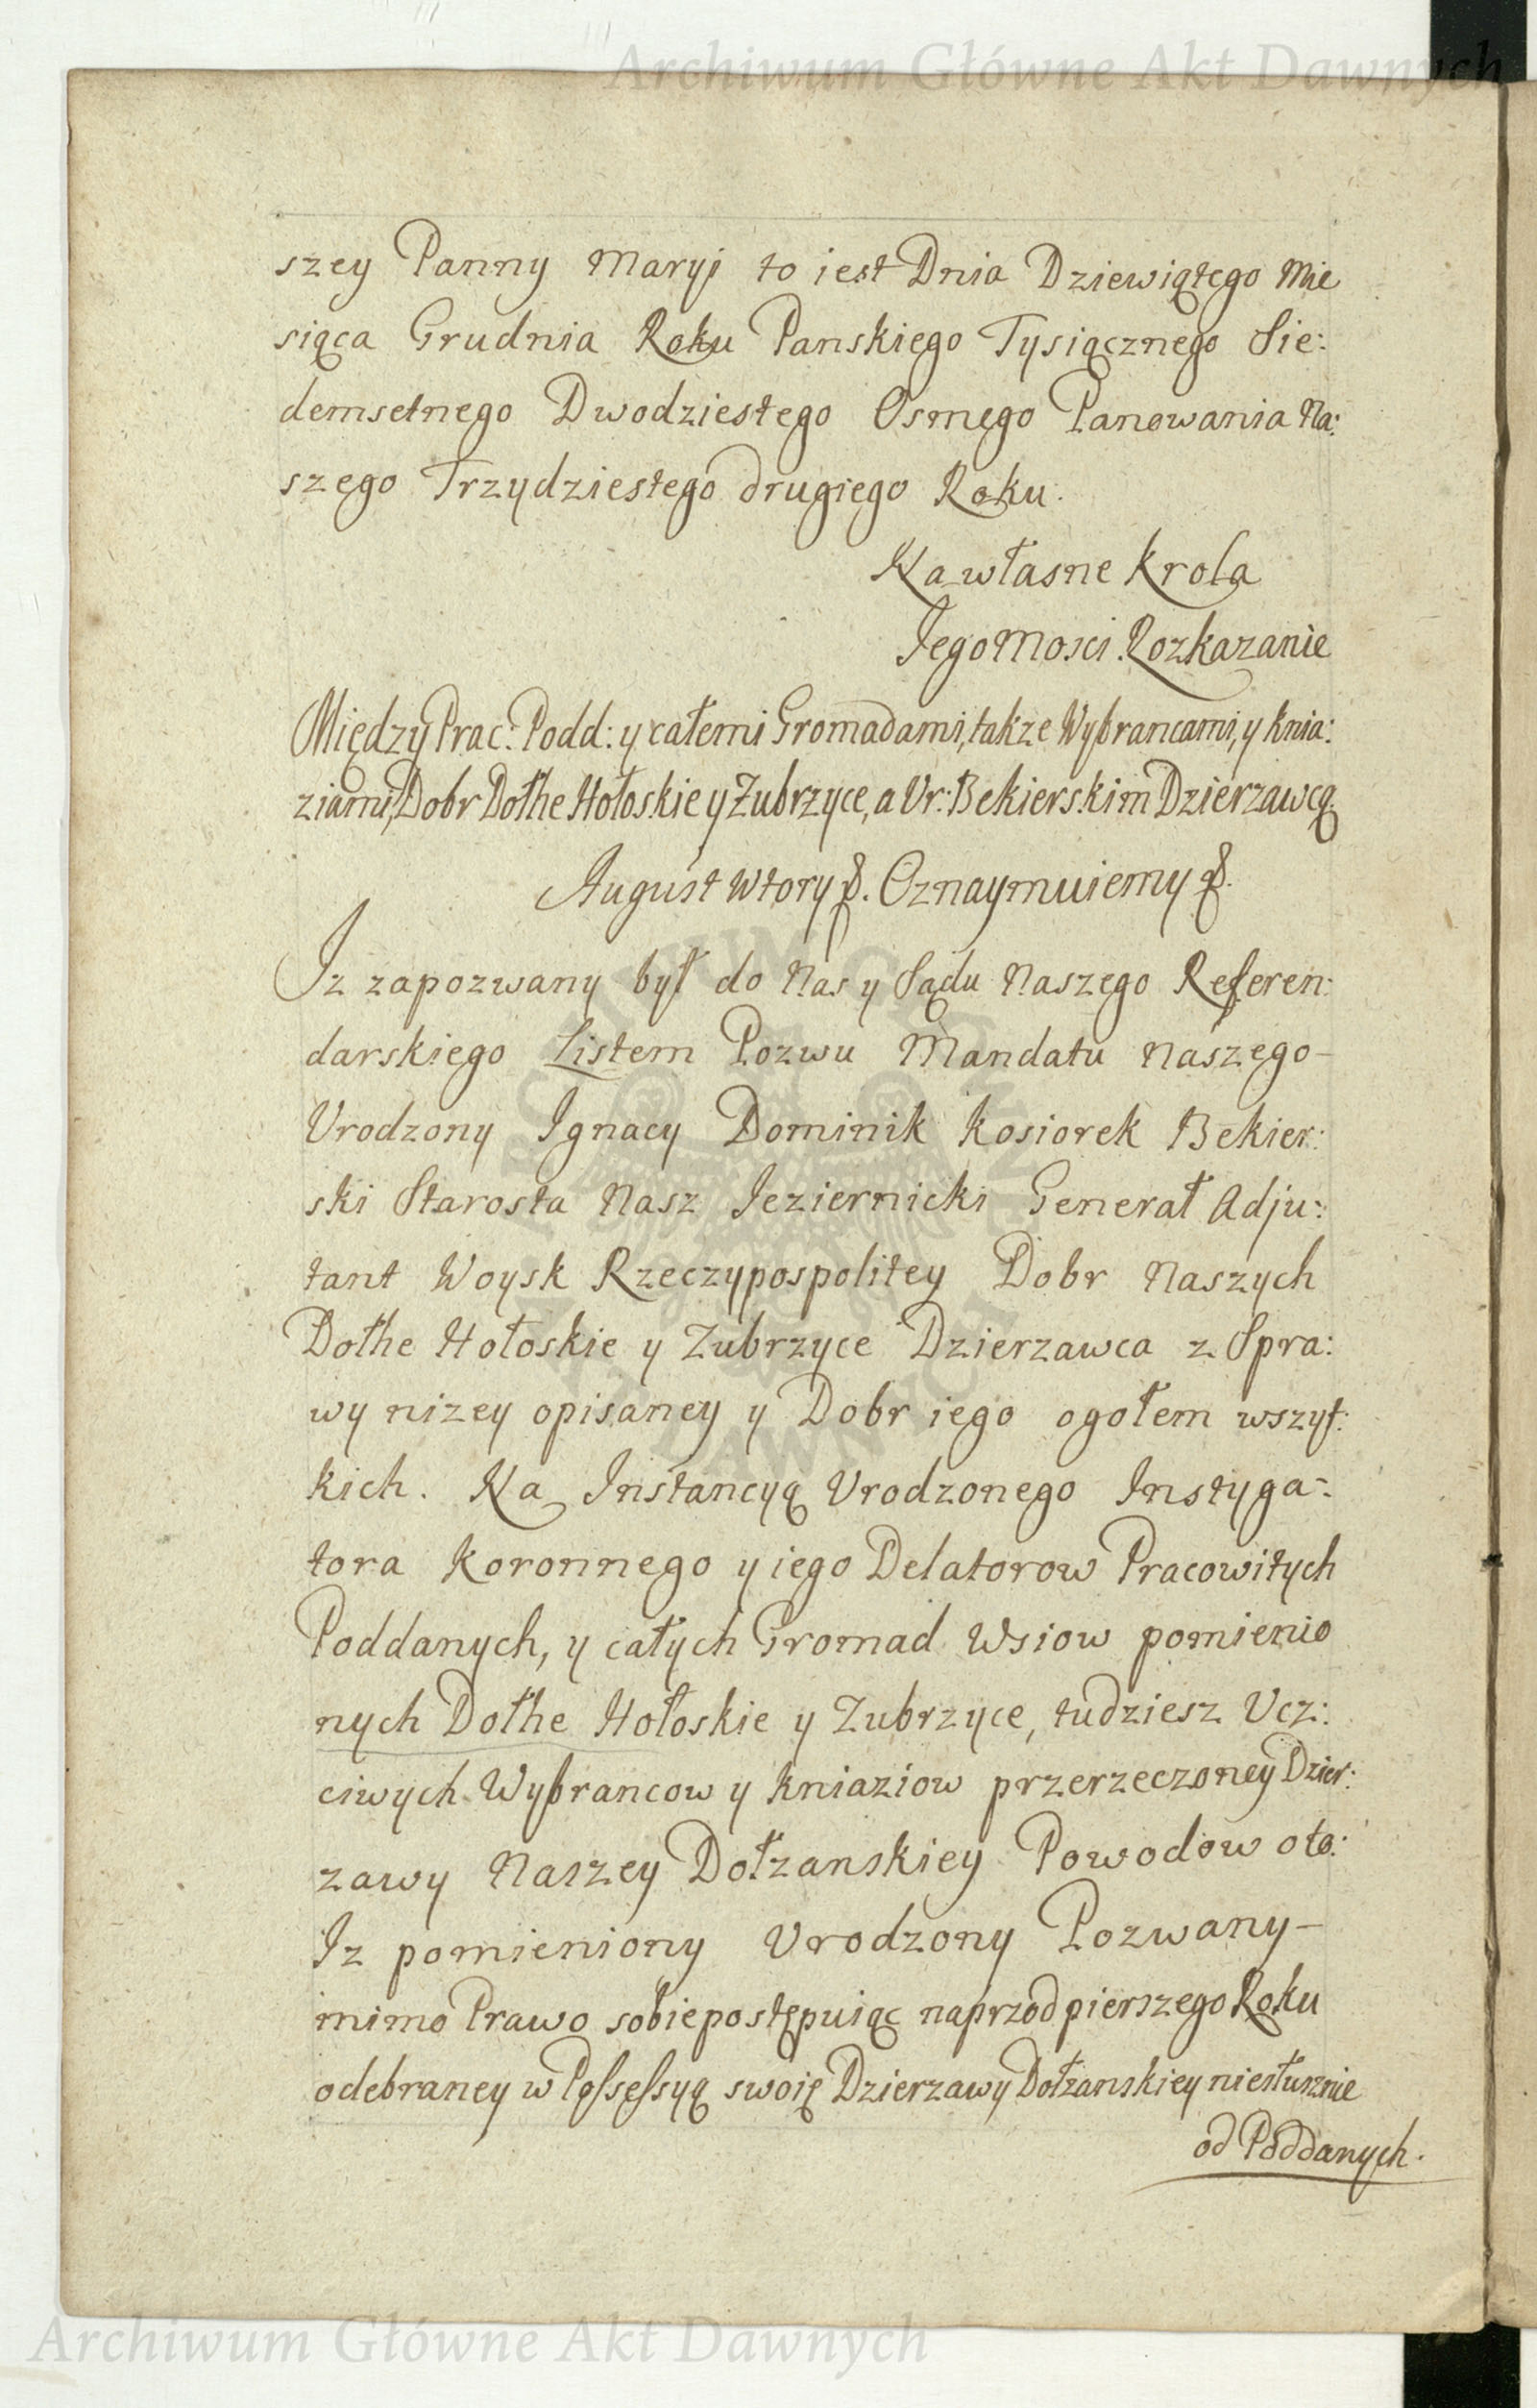 Archiwum Główne Akt Dawnych
szey Panny Maryi to iest Dnia Dziewiątego Mie
siąca Grudnia Roku Panskiego Tysiącznego Sie:
demsetnego Dwodziestego Osmego Panowania Na:
szego Trzydziestego drugiego Roku.
Na własne Krola
Jego Mosci Rozkazanie
Między Prac: Podd: y całemi Gromadami, takze Wybrancami, y Knia:
ziami, Dobr Dołhe Hołoskie y Zubrzyce, a Ur: Bekierskim Dzierzawcą.
August Wtory. Oznaymuiemy.
Iz zapozwany był do Nas y Sądu Naszego Referen:
darskiego Listem Pozwu Mandatu Naszego-
Urodzony Ignacy Dominik Kosiorek Bekier:
ski Starosta Nasz Jeziernicki Generał Adju:
tant Woysk Rzeczypospolitey Dobr Naszych
Dołhe Hołoskie y Zubrzyce Dzierzawca z Spra:
wy nizey opisaney y Dobr iego ogołem wszyt:
kich. Na Instancyą Urodzonego Instyga:
tora Koronnego y iego Delatorow Pracowitych
Poddanych, y całych Gromad Wsiow pomienio
nych Dołhe Hołoskie y Zubrzyce, tudziesz Ucz:
ciwych Wybrancow y Kniaziow przerzeczoney Dzier:
zawy Naszey Dołzanskiey Powodow oto:
Iz pomieniony Urodzony Pozwany-
mimo Prawo sobie postępuiąc naprzod pierszego Roku
odebraney w Possessyą swoię Dzierzawy Dołzanskiey niesłusznie
od Poddanych.
Archiwum Główne Akt Dawnych